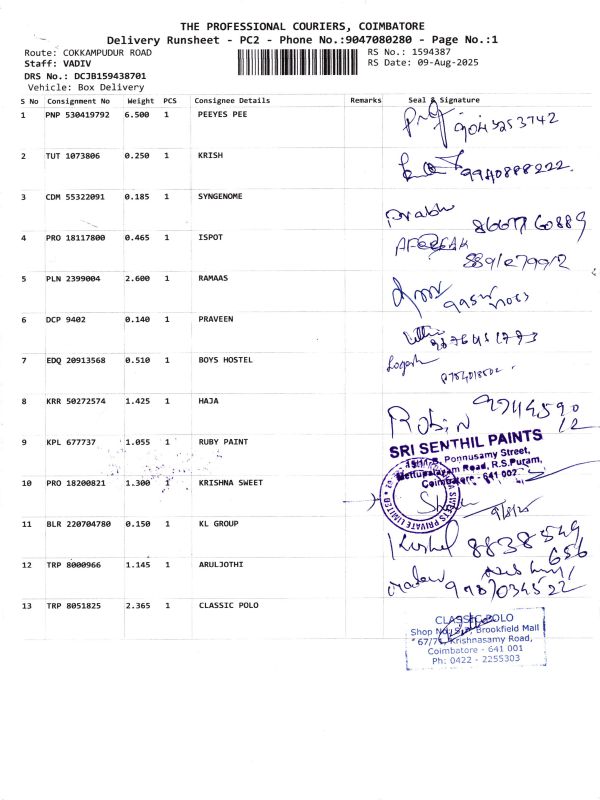 THE PROFESSIONAL COURIERS, COIMBATORE
Delivery Runsheet - PC2 - Phone No.:9047080280 - Page No.:1
Route: COKKAMPUDUR ROAD
RS No.: 1594387
Staff: VADIV
RS Date: 09-Aug-2025
DRS No.: DCJB159438701
Vehicle: Box Delivery
S No Consignment No Weight PCS Consignee Details Remarks Seal & Signature
1 PNP 530419792 6.500 1 PEEYES PEE
9043253742
2 TUT 1073806 0.250 1 KRISH
9940888222.
3 CDM 55322091 0.185 1 SYNGENOME
Prabhu
8667760889
4 PRO 18117800 0.465 1 ISPOT
5 PLN 2399004 2.600 1 RAMAAS
6 DCP 9402 0.140 1 PRAVEEN
7 EDQ 20913568 0.510 1 BOYS HOSTEL
Logesh
8 KRR 50272574 1.425 1 HAJA
Robin 9744590
12
9 KPL 677737 1.055 1 RUBY PAINT
SRI SENTHIL PAINTS
Ponnusamy Street,
Mettupalayam Road, R.S.Puram,
Coimbatore - 641 002
10 PRO 18200821 1.300 1 KRISHNA SWEET
SWEETS PRIVATE LIMITED
9/8/25
11 BLR 220704780 0.150 1 KL GROUP
8838549
656
12 TRP 8000966 1.145 1 ARULJOTHI
9787034522
13 TRP 8051825 2.365 1 CLASSIC POLO
CLASSIC POLO
Shop No. Brookfield Mall
67/71, Krishnasamy Road,
Coimbatore - 641 001
Ph: 0422 - 2255303